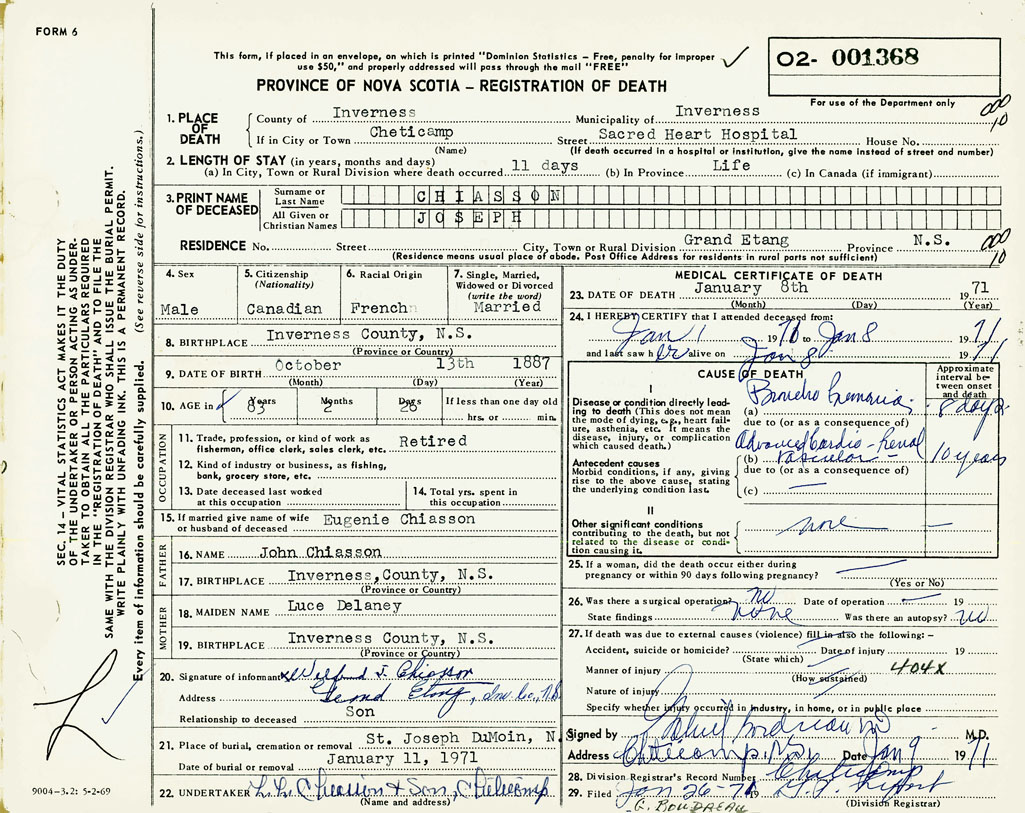 FORM 6
This form, if placed in an envelope, on which is printed "Dominion Statistics – Free, penalty for improper
use $50," and properly addressed will pass through the mail "FREE"
02- 001368
For use of the Department only
PROVINCE OF NOVA SCOTIA – REGISTRATION OF DEATH
1. PLACE OF DEATH
County of Inverness Municipality of Inverness
If in City or Town Cheticamp Street Sacred Heart Hospital House No.
(Name) (If death occurred in a hospital or institution, give the name instead of street and number)
000
10
2. LENGTH OF STAY (in years, months and days)
(a) In City, Town or Rural Division where death occurred 11 days (b) In Province Life (c) In Canada (if immigrant)
3. PRINT NAME OF DECEASED
Surname or Last Name CHIASSON
All Given or Christian Names JOSEPH
RESIDENCE No. Street City, Town or Rural Division Grand Etang Province N.S.
(Residence means usual place of abode. Post Office Address for residents in rural parts not sufficient)
000
10
4. Sex
Male
5. Citizenship
(Nationality)
Canadian
6. Racial Origin
French
7. Single, Married,
Widowed or Divorced
(write the word)
Married
8. BIRTHPLACE Inverness County, N.S.
(Province or Country)
9. DATE OF BIRTH October 13th 1887
(Month) (Day) (Year)
10. AGE in
Years 83
Months 2
Days 26
If less than one day old
hrs. or min.
OCCUPATION
11. Trade, profession, or kind of work as
fisherman, office clerk, sales clerk, etc. Retired
12. Kind of industry or business, as fishing,
bank, grocery store, etc.
13. Date deceased last worked
at this occupation
14. Total yrs. spent in
this occupation
15. If married give name of wife
or husband of deceased Eugenie Chiasson
FATHER
16. NAME John Chiasson
17. BIRTHPLACE Inverness, County, N.S.
(Province or Country)
MOTHER
18. MAIDEN NAME Luce Delaney
19. BIRTHPLACE Inverness County, N.S.
(Province or Country)
20. Signature of informant Wilfred J. Chiasson
Address Grand Etang, Inv. Co., N.S.
Relationship to deceased Son
21. Place of burial, cremation or removal St. Joseph DuMoin, N.
Date of burial or removal January 11, 1971
22. UNDERTAKER Chiasson & Son, Cheticamp
(Name and address)
MEDICAL CERTIFICATE OF DEATH
23. DATE OF DEATH January 8th 1971
(Month) (Day) (Year)
24. I HEREBY CERTIFY that I attended deceased from:
Jan 1 1970 to Jan 8 1971
and last saw her alive on Jan 8 1971
CAUSE OF DEATH
Approximate
interval be-
tween onset
and death
I
Disease or condition directly lead-
ing to death (This does not mean
the mode of dying, e.g., heart fail-
ure, asthenia, etc. It means the
disease, injury, or complication
which caused death.)
(a) Broncho Pneumonia 8 days
due to (or as a consequence of)
Antecedent causes
Morbid conditions, if any, giving
rise to the above cause, stating
the underlying condition last.
Advanced Cardio-Renal
(b) vascular 10 years
due to (or as a consequence of)
(c) —
II
Other significant conditions
contributing to the death, but not
related to the disease or condi-
tion causing it.
none –
25. If a woman, did the death occur either during
pregnancy or within 90 days following pregnancy?
(Yes or No)
26. Was there a surgical operation? no Date of operation — 19
State findings none Was there an autopsy? no
27. If death was due to external causes (violence) fill in also the following: –
Accident, suicide or homicide? Date of injury 19
(State which)
Manner of injury 404X
(How sustained)
Nature of injury
Specify whether injury occurred in industry, in home, or in public place
Signed by M.D.
Address Cheticamp, N.S. Date Jan 9 1971
28. Division Registrar's Record Number Cheticamp
29. Filed Jan 26-71
(Division Registrar)
G. BOUDREAU
SEC. 14 – VITAL STATISTICS ACT MAKES IT THE DUTY
OF THE UNDERTAKER OR PERSON ACTING AS UNDER-
TAKER TO OBTAIN ALL THE PARTICULARS REQUIRED
IN THE "REGISTRATION OF DEATH" AND TO FILE THE
SAME WITH THE DIVISION REGISTRAR WHO SHALL ISSUE THE BURIAL PERMIT.
WRITE PLAINLY WITH UNFADING INK. THIS IS A PERMANENT RECORD.
Every item of information should be carefully supplied. (See reverse side for instructions.)
9004-3.2: 5-2-69